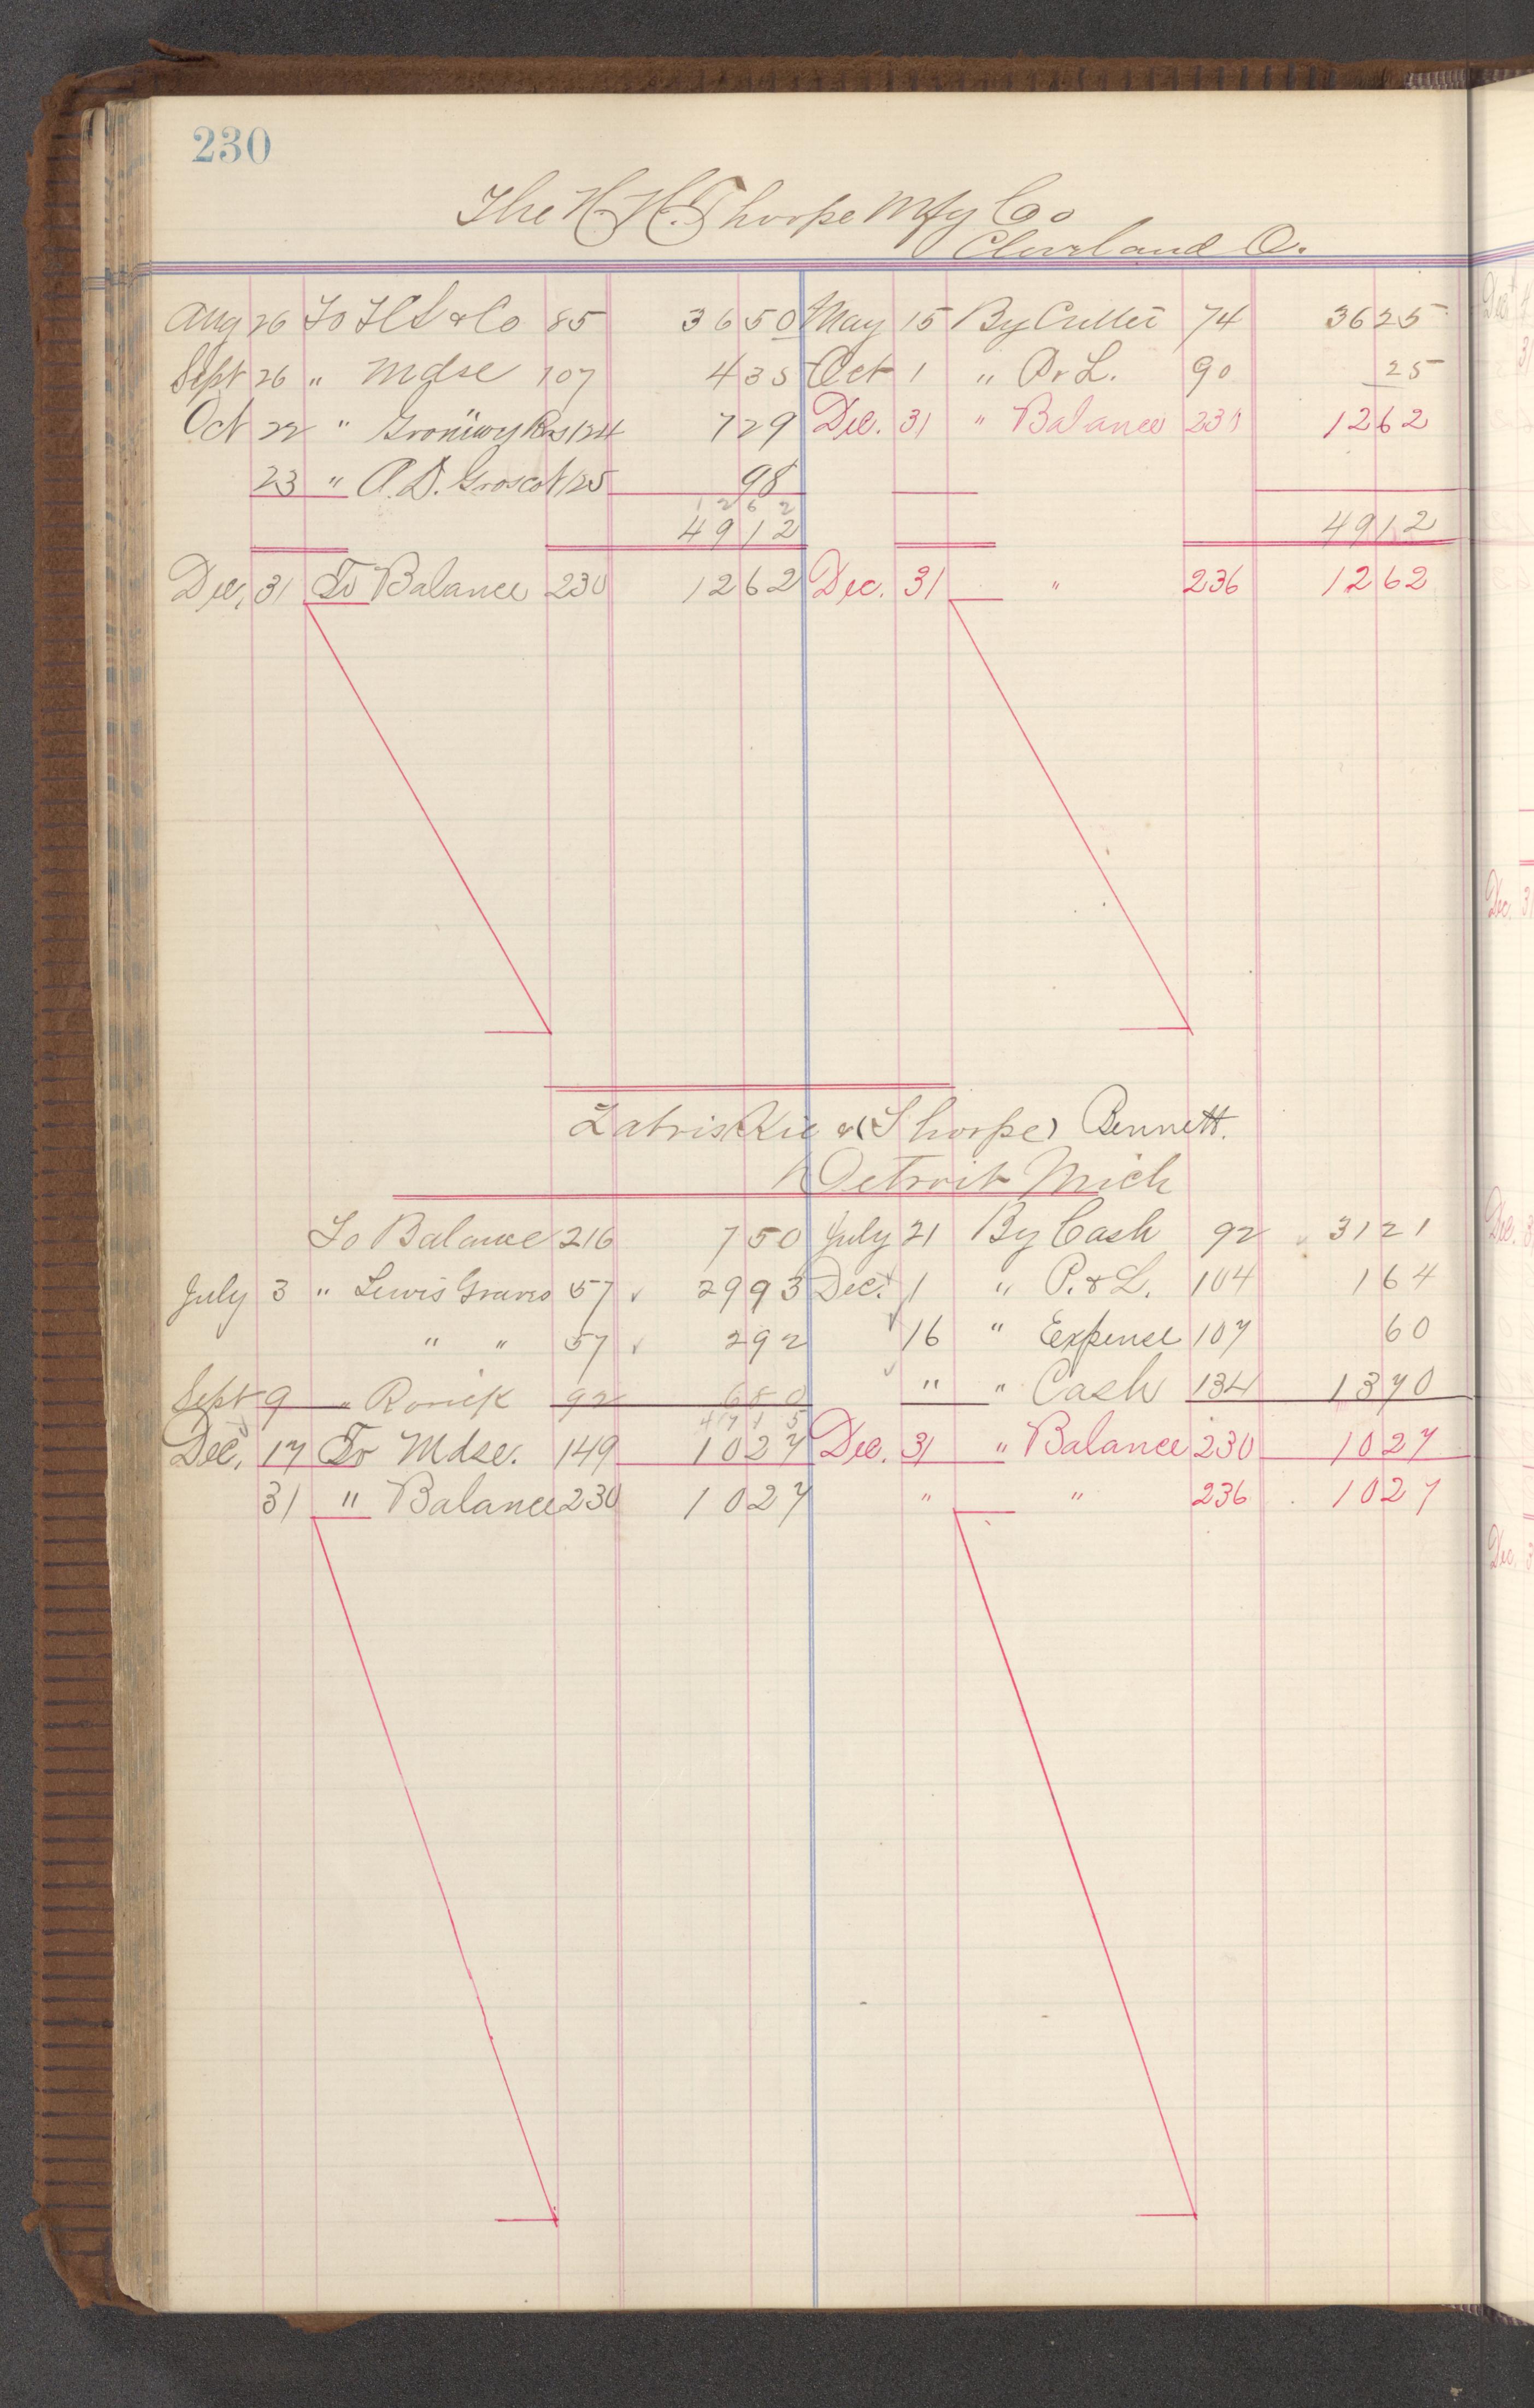 230
The H. H. Thorpe Mfg Co
Cleveland O.
Aug 26 To H C S & Co 85 3650 May 15 By Cutter 74 3625
Sept 26 " Mdse 107 435 Oct 1 " P & L. 90 25
Oct 22 " 124 729 Dec. 31 " Balance 230 1262
23 " A. D. Groscot 125 98
1262
4912 4912
Dec, 31 To Balance 230 1262 Dec. 31 " 236 1262
Zabriskie & (Thorpe) Bennett.
Detroit Mich
To Balance 216 750 July 21 By Cash 92 3121
July 3 " Lewis Graves 57 2993 Dec. 1 " P. & L. 104 164
" " 57 292 16 " Expense 107 60
Sept 9 " 92 680 " " Cash 134 1370
4715
Dec, 17 To Mdse. 149 1027 Dec. 31 " Balance 230 1027
31 " Balance 230 1027 " " 236 1027